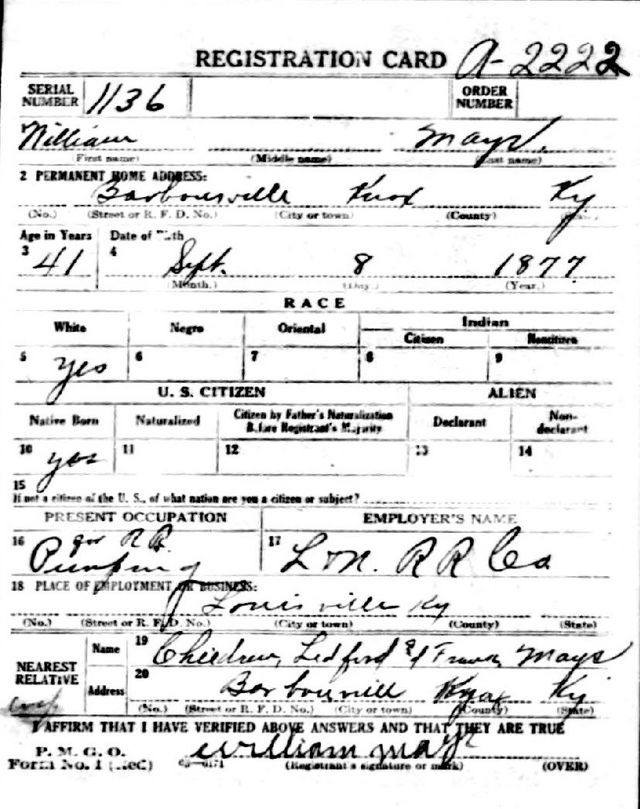 REGISTRATION CARD A-2222
SERIAL NUMBER 1136 ORDER NUMBER
William Mays
(First name) (Middle name) (Last name)
2 PERMANENT HOME ADDRESS:
Barbourville Knox Ky
(No.) (Street or R. F. D. No.) (City or town) (County)
Age in Years Date of Birth
3 41 4 Sept. 8 1877
(Month.) (Day.) (Year.)
RACE
White Negro Oriental Indian
Citizen Noncitizen
5 yes 6 7 8 9
U. S. CITIZEN ALIEN
Native Born Naturalized Citizen by Father's Naturalization Before Registrant's Majority Declarant Non-declarant
10 yes 11 12 13 14
15
If not a citizen of the U. S., of what nation are you a citizen or subject?
PRESENT OCCUPATION EMPLOYER'S NAME
16 Pumping for R R. 17 L & N. R R Co
18 PLACE OF EMPLOYMENT OR BUSINESS:
Louisville Ky
(No.) (Street or R. F. D. No.) (City or town) (County) (State)
NEAREST RELATIVE
Name 19 Children, Ledford & Mays
Address 20 Barbourvill Knox Ky
(No.) (Street or R. F. D. No.) (City or town) (County) (State)
I AFFIRM THAT I HAVE VERIFIED ABOVE ANSWERS AND THAT THEY ARE TRUE
P. M. G. O.
Form No. 1 (Red) william mays
(Registrant's signature or mark) (OVER)